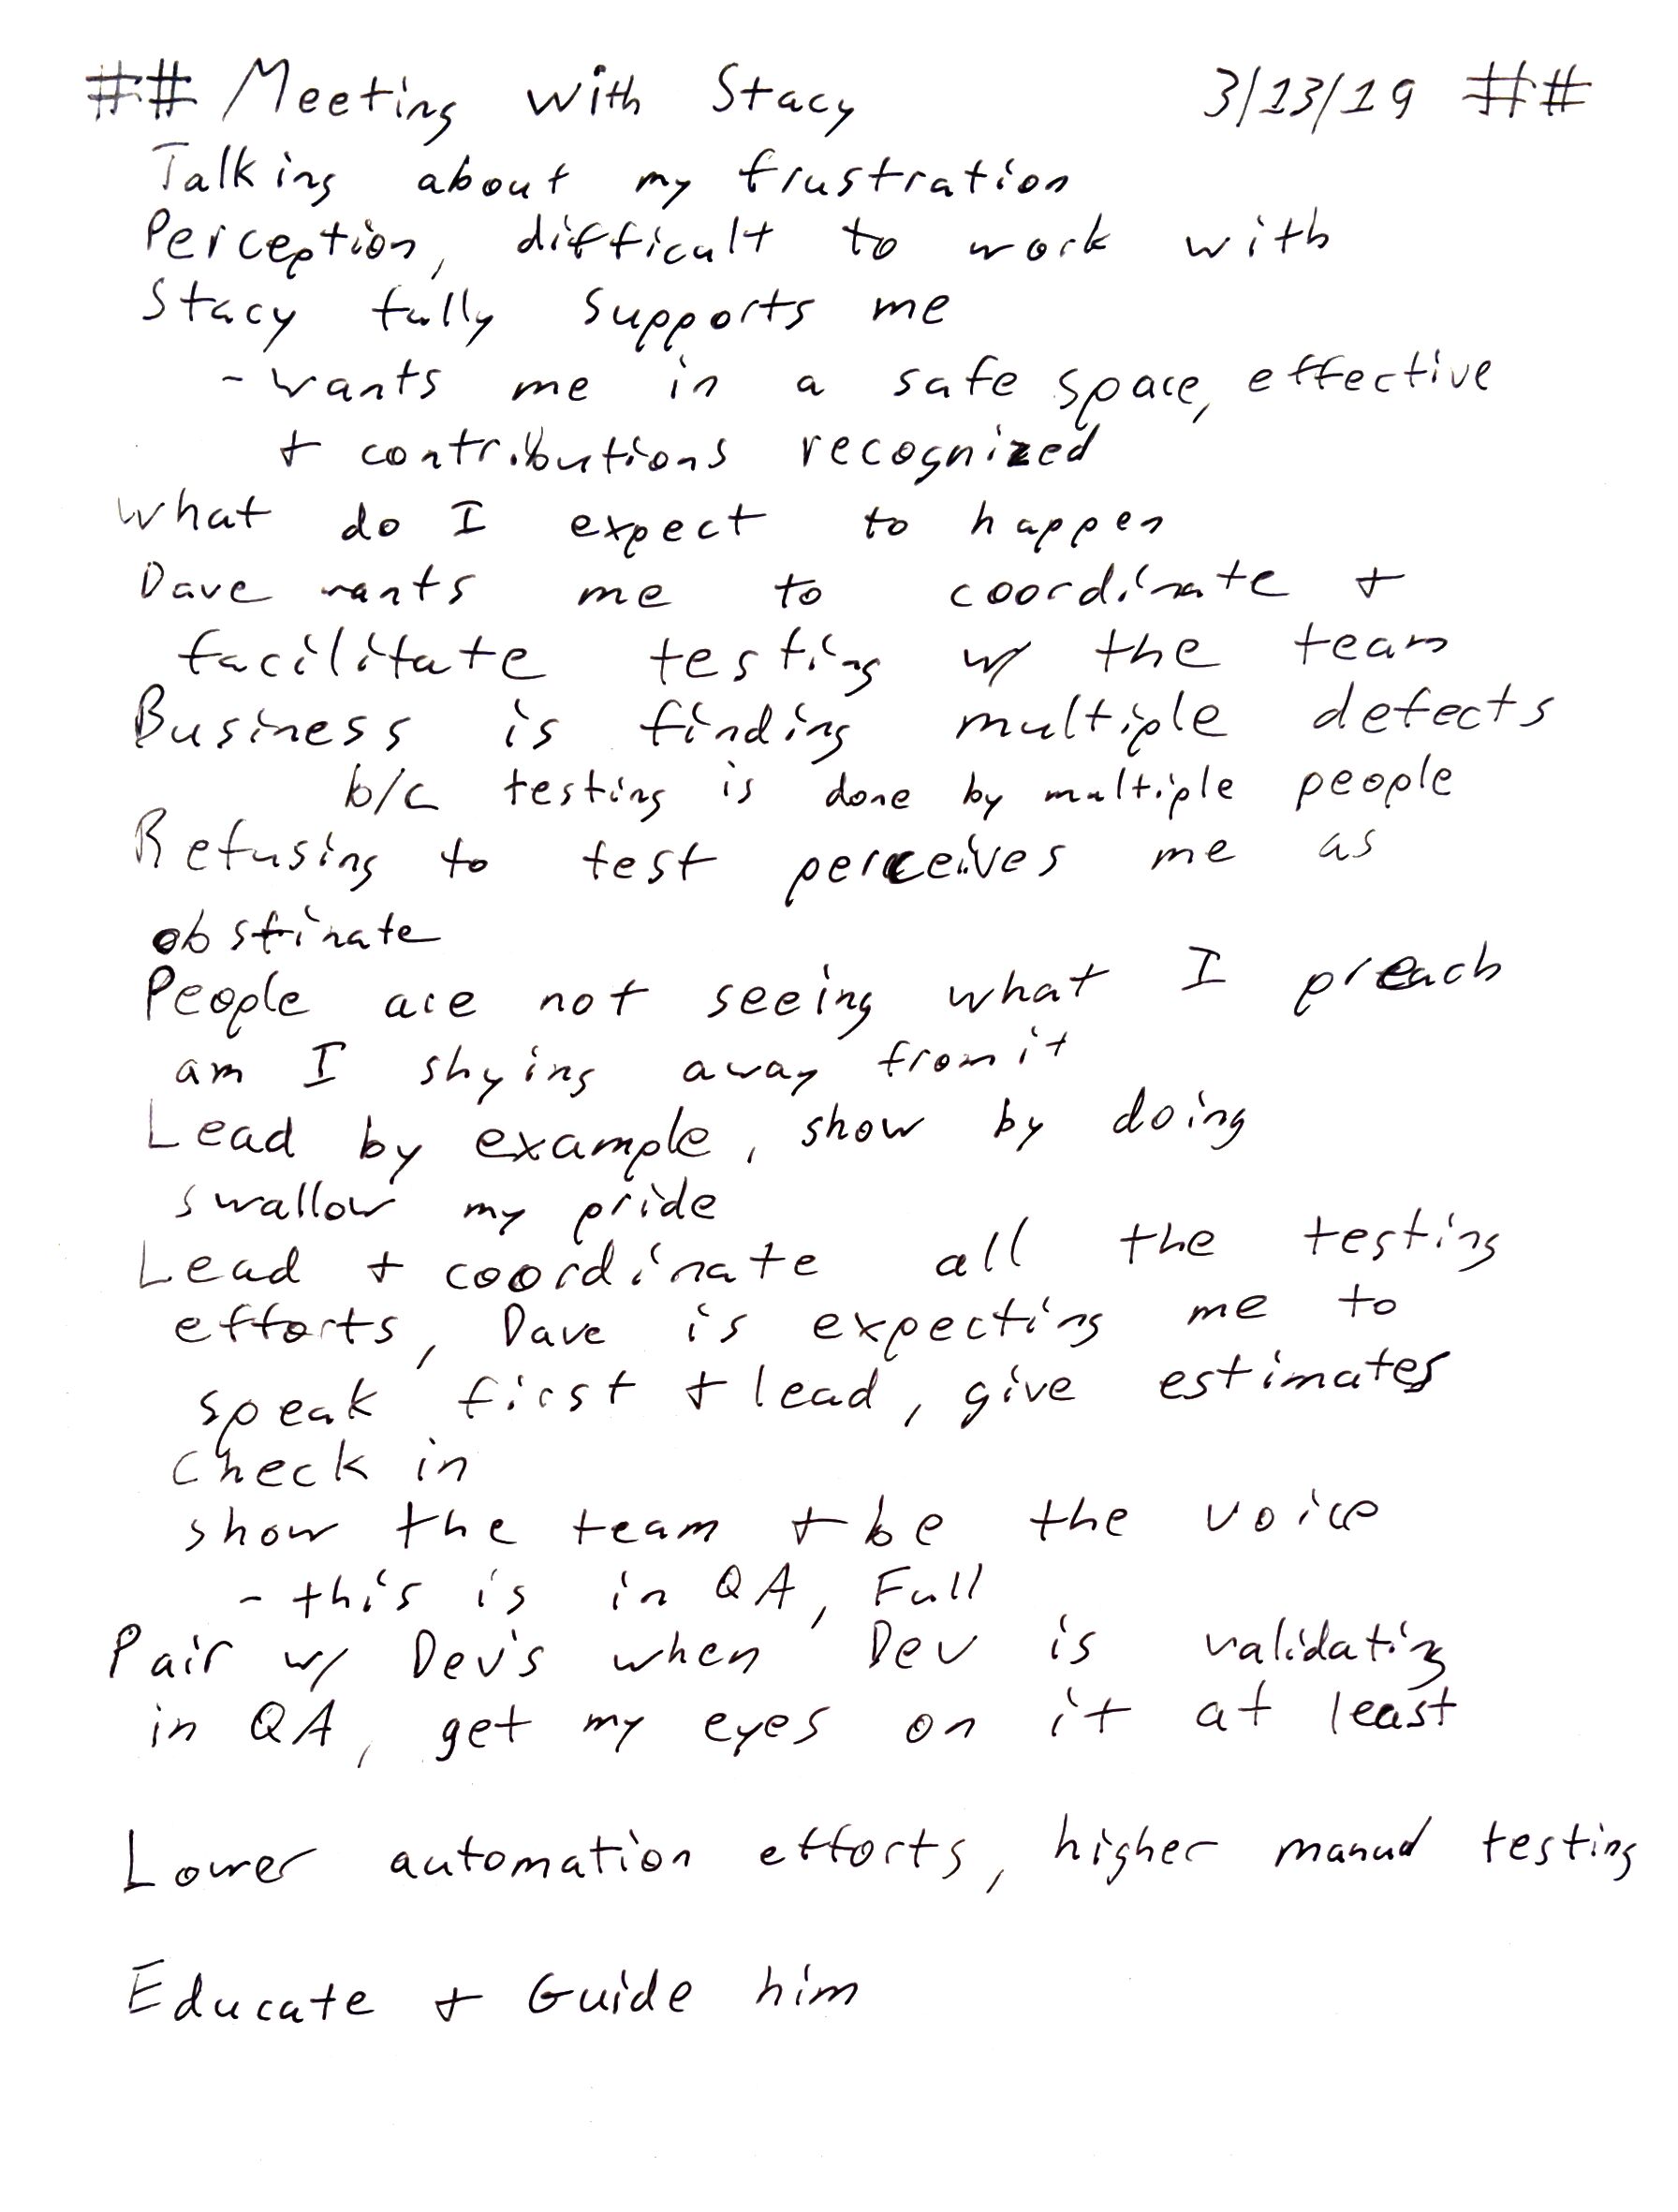 ## Meeting with Stacy 3/13/19 ##
Talking about my frustration
Perception, difficult to work with
Stacy fully supports me
- wants me in a safe space, effective
+ contributions recognized
What do I expect to happen
Dave wants me to coordinate +
facilitate testing w/ the team
Business is finding multiple defects
b/c testing is done by multiple people
Refusing to test perceives me as
obstinate
People are not seeing what I preach
am I shying away from it
Lead by example, show by doing
swallow my pride
Lead + coordinate all the testing
efforts, Dave is expecting me to
speak first + lead, give estimates
Check in
show the team + be the voice
- this is in QA, Full
Pair w/ Dev's when Dev is validating
in QA, get my eyes on it at least
Lower automation efforts, higher manual testing
Educate + Guide him